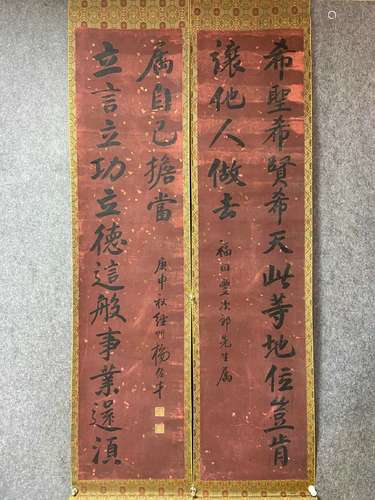 希聖希賢希天此等地位豈肯
讓他人做去
福田豐次郎先生属
立言立功立德這般事業還須
属自己擔當
庚申秋
楊